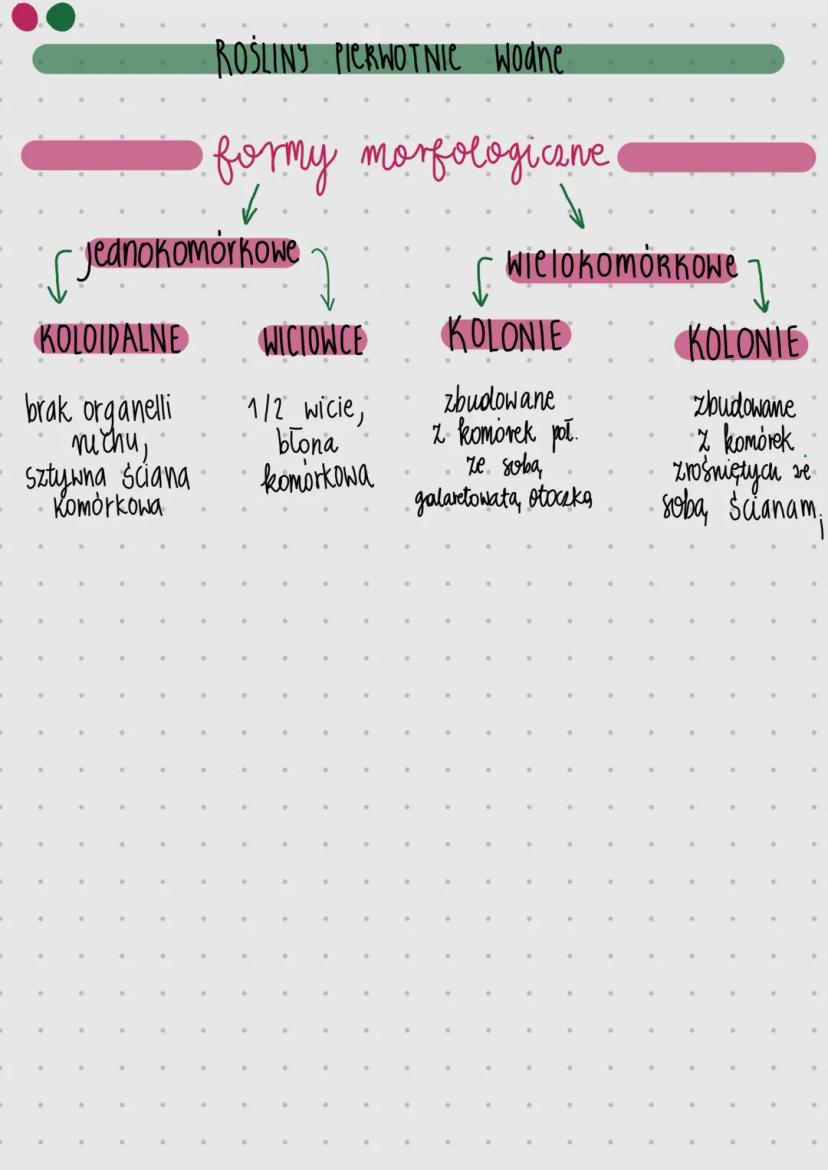 ROŚLINY PIERWOTNIE wodne
formy morfologiczne
jednokomórkowe
wielokomórkowe
KOLOIDALNE
WICIOWCE
KOLONIE
KOLONIE
brak organelli
ruchu,
sztywna ściana
komórkowa
1/2 wicie,
błona
komórkowa
zbudowane
z komórek poł.
ze sobą
galaretowatą otoczką
zbudowane
z komórek
zrośniętych ze
sobą ścianami